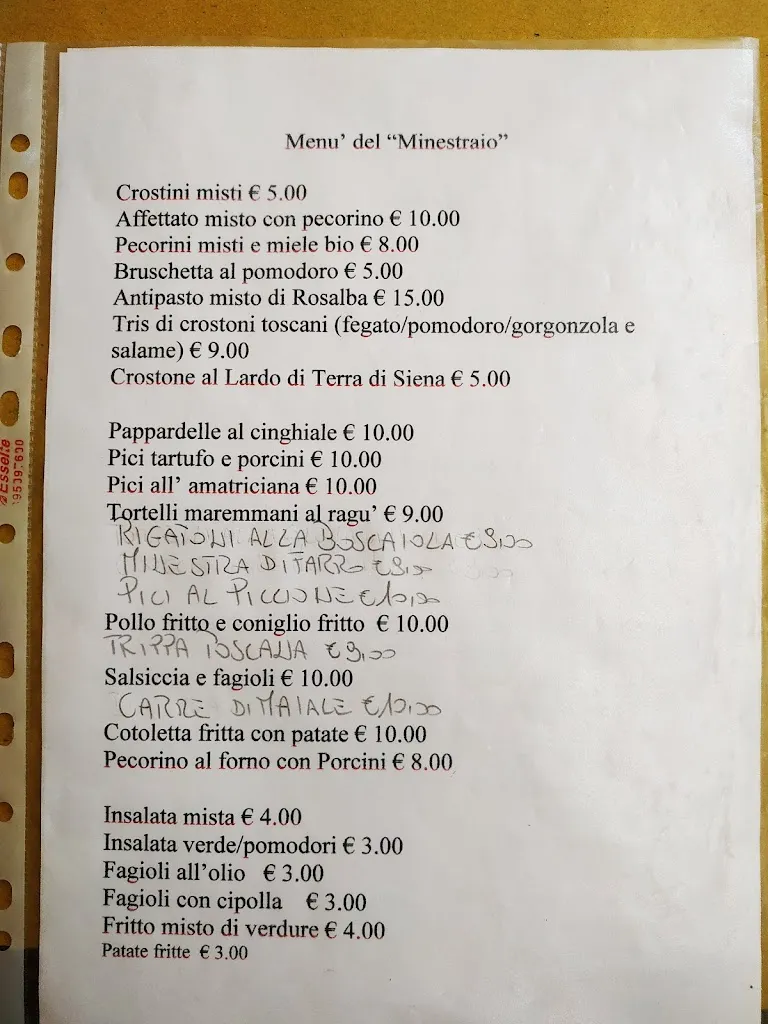 Menu' del "Minestraio"
Crostini misti € 5.00
Affettato misto con pecorino € 10.00
Pecorini misti e miele bio € 8.00
Bruschetta al pomodoro € 5.00
Antipasto misto di Rosalba € 15.00
Tris di crostoni toscani (fegato/pomodoro/gorgonzola e
salame) € 9.00
Crostone al Lardo di Terra di Siena € 5.00
Pappardelle al cinghiale € 10.00
Pici tartufo e porcini € 10.00
Pici all' amatriciana € 10.00
Tortelli maremmani al ragu' € 9.00
RIGATONI ALLA BOSCAIOLA
MINESTRA DI FARRO
PICI AL PICCIONE € 10,00
Pollo fritto e coniglio fritto € 10.00
TRIPPA TOSCANA € 9,00
Salsiccia e fagioli € 10.00
CARRE DI MAIALE € 10,00
Cotoletta fritta con patate € 10.00
Pecorino al forno con Porcini € 8.00
Insalata mista € 4.00
Insalata verde/pomodori € 3.00
Fagioli all'olio € 3.00
Fagioli con cipolla € 3.00
Fritto misto di verdure € 4.00
Patate fritte € 3.00
Esselte